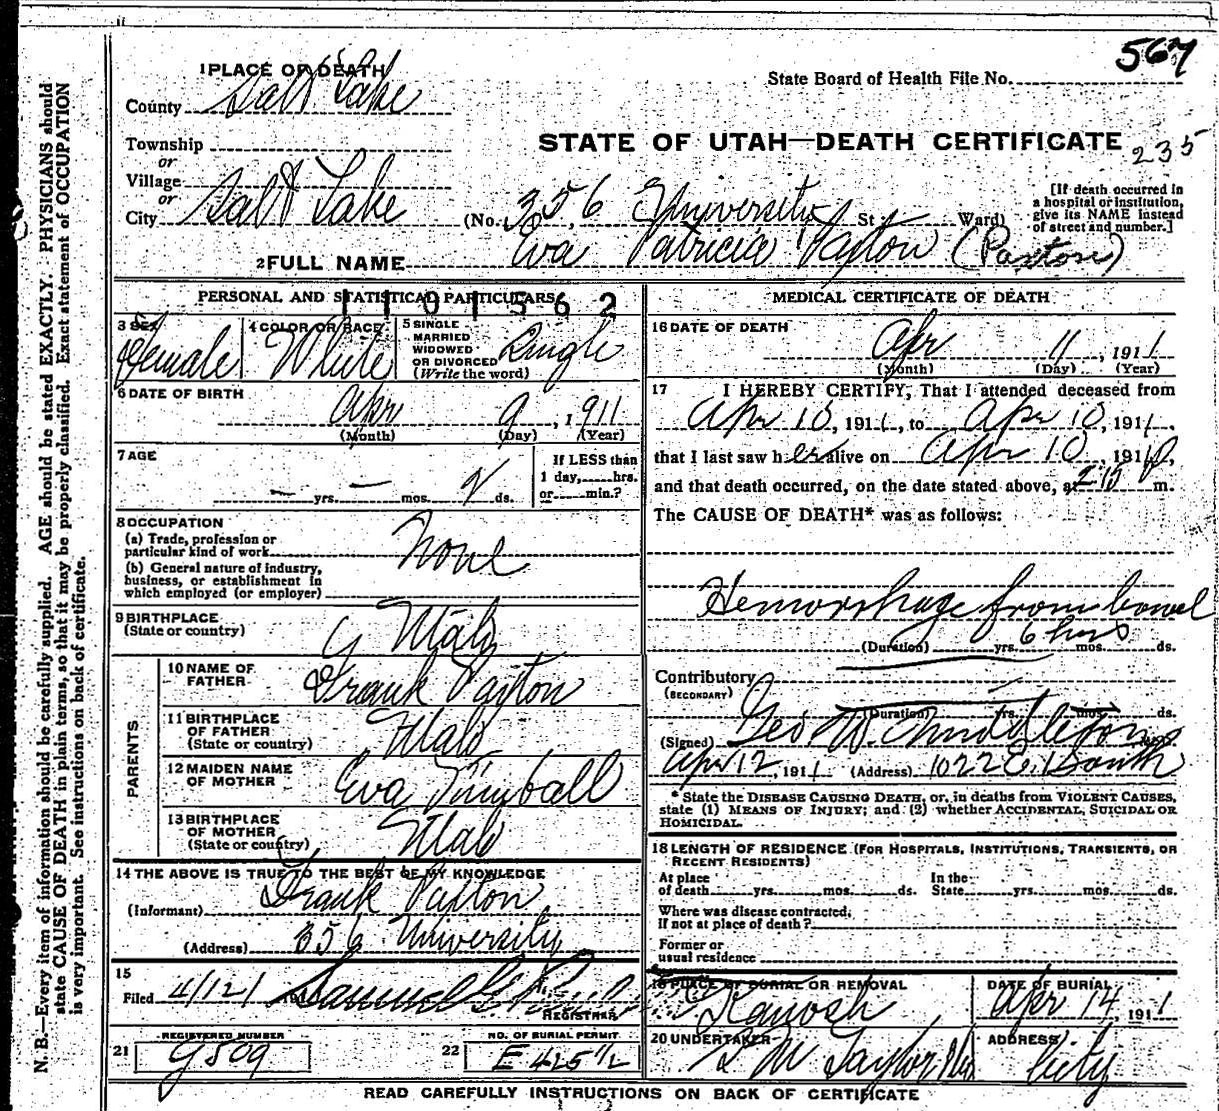 567
1 PLACE OF DEATH
State Board of Health File No.
County Salt Lake
STATE OF UTAH—DEATH CERTIFICATE 235
Township
or
Village
or
City Salt Lake (No. 356 University St. Ward)
[If death occurred in a hospital or institution, give its NAME instead of street and number.]
2 FULL NAME Eva Patricia Paxton (Paxton)
PERSONAL AND STATISTICAL PARTICULARS
1101562
3 SEX Female
4 COLOR OR RACE White
5 SINGLE MARRIED WIDOWED OR DIVORCED (Write the word) Single
6 DATE OF BIRTH Apr 9, 1911
(Month) (Day) (Year)
7 AGE — yrs. — mos. ds.
If LESS than 1 day, hrs. or min.?
8 OCCUPATION
(a) Trade, profession or particular kind of work None
(b) General nature of industry, business, or establishment in which employed (or employer)
9 BIRTHPLACE
(State or country) Utah
PARENTS
10 NAME OF FATHER Frank Paxton
11 BIRTHPLACE OF FATHER
(State or country) Utah
12 MAIDEN NAME OF MOTHER Eva Kimball
13 BIRTHPLACE OF MOTHER
(State or country) Utah
14 THE ABOVE IS TRUE TO THE BEST OF MY KNOWLEDGE
(Informant) Frank Paxton
(Address) 356 University
15
Filed 4/12/ 191 Samuel G.
REGISTRAR
REGISTERED NUMBER
21 G509
NO. OF BURIAL PERMIT
22 E 425 1/2
MEDICAL CERTIFICATE OF DEATH
16 DATE OF DEATH Apr 11, 1911
(Month) (Day) (Year)
17 I HEREBY CERTIFY, That I attended deceased from
Apr 10, 1911, to Apr 10, 1911,
that I last saw her alive on Apr 10, 191
and that death occurred, on the date stated above, at 215 m.
The CAUSE OF DEATH* was as follows:
Hemorrhage from bowel
(Duration) yrs. 6 hrs mos. ds.
Contributory
(SECONDARY)
(Duration) yrs. mos. ds.
(Signed) Geo. W.
Apr 12, 1911 (Address) 1022 E. 1 South
* State the DISEASE CAUSING DEATH, or, in deaths from VIOLENT CAUSES, state (1) MEANS OF INJURY; and (2) whether ACCIDENTAL, SUICIDAL OR HOMICIDAL.
18 LENGTH OF RESIDENCE (FOR HOSPITALS, INSTITUTIONS, TRANSIENTS, OR RECENT RESIDENTS)
At place of death yrs. mos. ds. In the State yrs. mos. ds.
Where was disease contracted, if not at place of death?
Former or usual residence
19 PLACE OF BURIAL OR REMOVAL Kanosh
DATE OF BURIAL Apr 14, 1911
20 UNDERTAKER S M Taylor
ADDRESS City
READ CAREFULLY INSTRUCTIONS ON BACK OF CERTIFICATE
N. B.—Every item of information should be carefully supplied. AGE should be stated EXACTLY. PHYSICIANS should
state CAUSE OF DEATH in plain terms, so that it may be properly classified. Exact statement of OCCUPATION
is very important. See instructions on back of certificate.